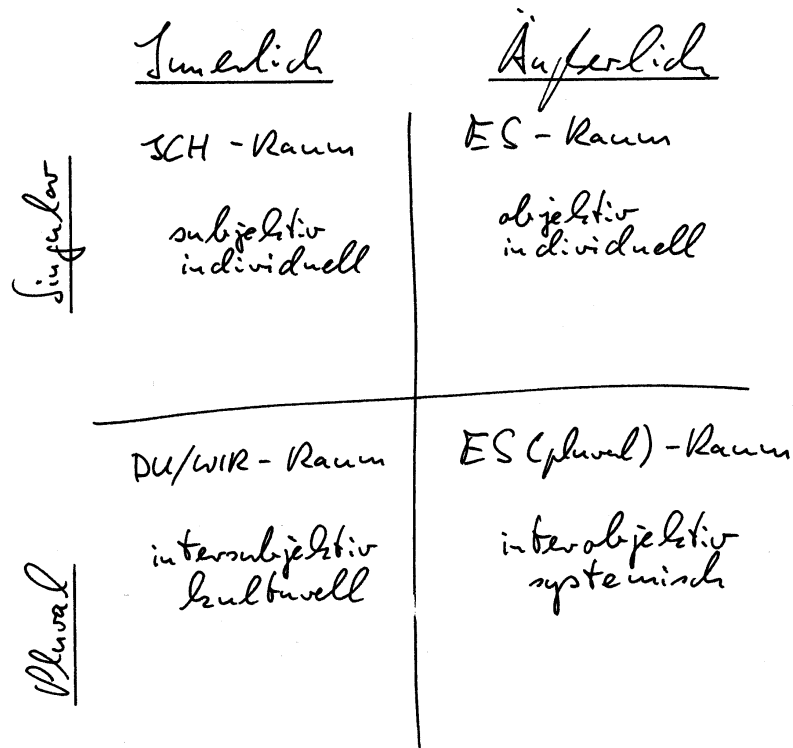 Innerlich
Äußerlich
Singular
ICH - Raum
subjektiv
individuell
ES - Raum
objektiv
individuell
Plural
DU/WIR - Raum
intersubjektiv
kulturell
ES (plural) - Raum
interobjektiv
systemisch